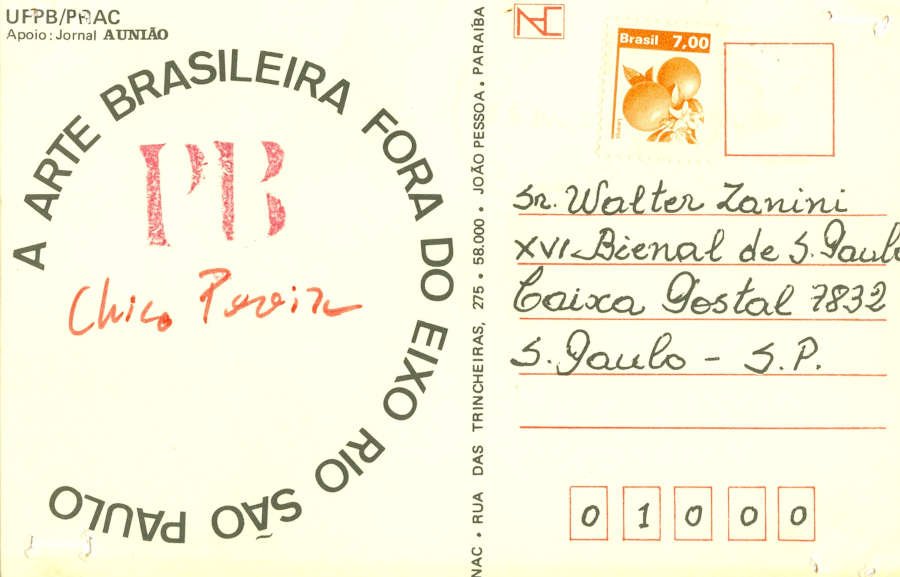 UFPB/PRAC
Apoio: Jornal A UNIÃO
A ARTE BRASILEIRA FORA DO EIXO RIO SÃO PAULO
PB
Chico Pereira
NAC • RUA DAS TRINCHEIRAS, 275 • 58.000 • JOÃO PESSOA • PARAÍBA
NAC
Brasil 7,00
Sr. Walter Zanini
XVI Bienal de S. Paulo
Caixa Postal 7832
S. Paulo - S.P.
0 1 0 0 0